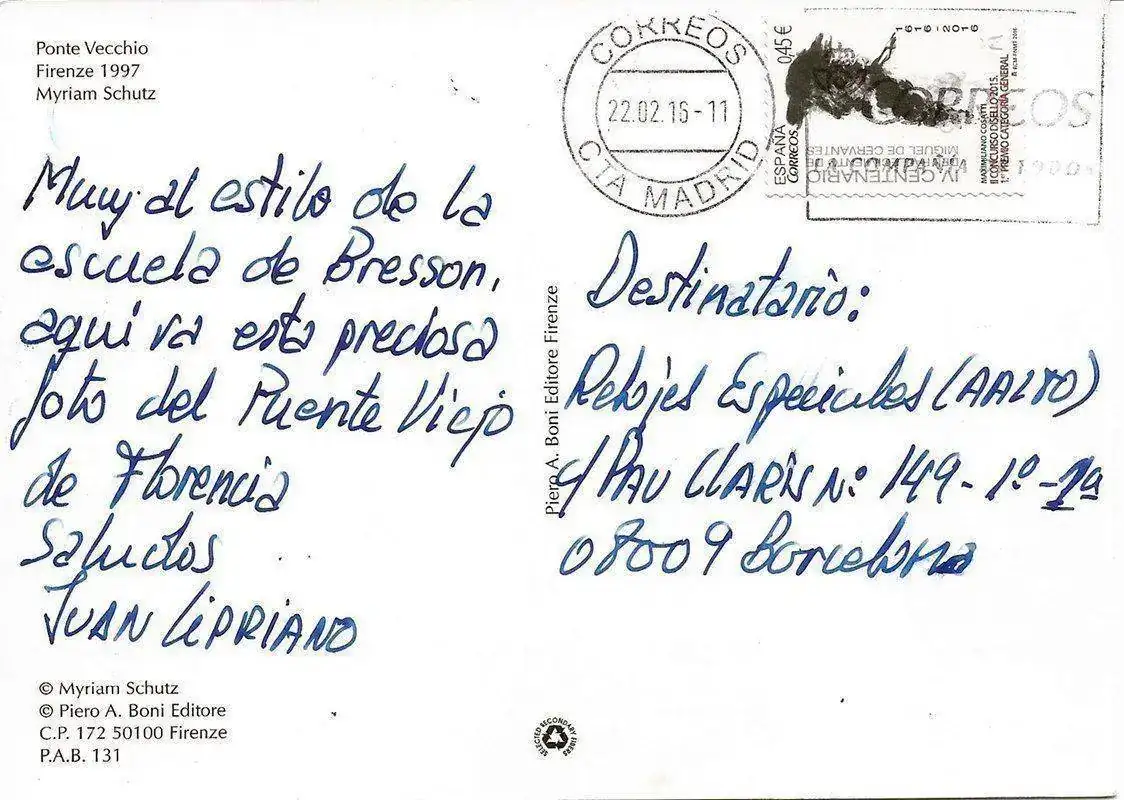 Ponte Vecchio
Firenze 1997
Myriam Schutz
Muy al estilo de la
escuela de Bresson,
aquí va esta preciosa
foto del Puente Viejo
de Florencia
Saludos
JUAN CIPRIANO
© Myriam Schutz
© Piero A. Boni Editore
C.P. 172 50100 Firenze
P.A.B. 131
Piero A. Boni Editore Firenze
SELECTED SECONDARY FIBERS
CORREOS
22.02.16-11
CTA MADRID
ESPAÑA
Correos
0,45 €
1616-2016
IV CENTENARIO
DE LA MUERTE DE
MIGUEL DE CERVANTES
MAXIMILIANO COSATTI
II CONCURSO DISELLO 2015.
1er PREMIO CATEGORÍA GENERAL
CORREOS
Destinatario:
Relojes Especiales (AALTO)
c/ PAU CLARÍS Nº 149-1º-1ª
08009 Barcelona